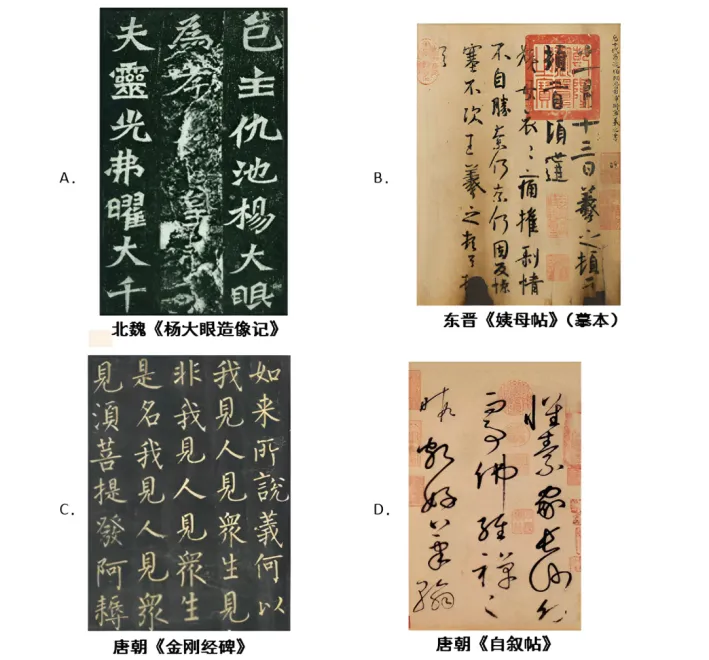 A.
邑主仇池楊大眼
為孝 皇
夫靈光弗曜大千
北魏《杨大眼造像记》
B.
一月十三日羲之頓首
頓首頃遘
姨母哀〻痛摧剥情
不自勝奈何奈何因反慘
塞不次王羲之頓首頓
首
东晋《姨母帖》(摹本)
C.
如来所說義何以
我見人見衆生見
非我見人見衆生
是名我見人見衆
見須菩提發阿耨
唐朝《金刚经碑》
D.
懷素家長沙幼
而事佛經禪之
暇頗好筆翰
唐朝《自叙帖》